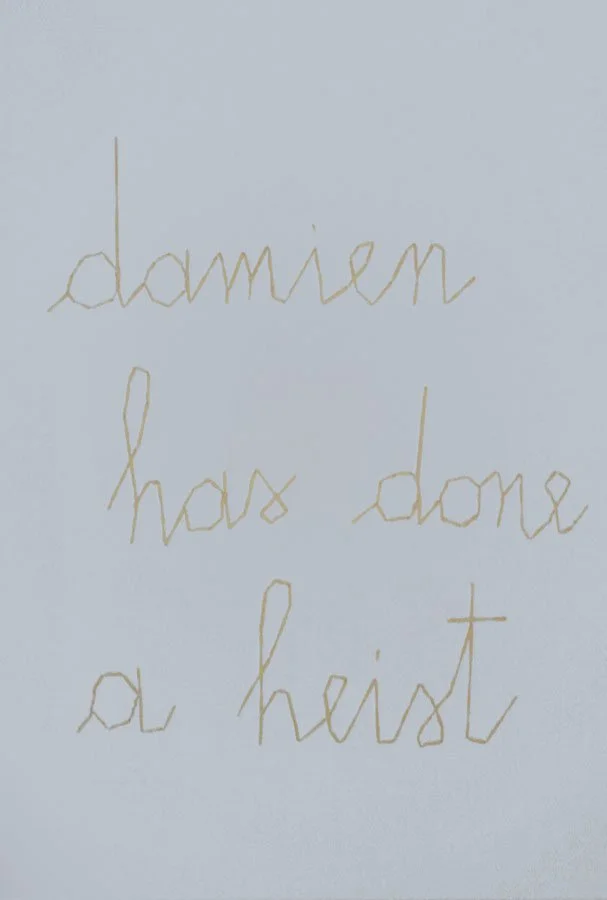 damien
has done
a heist